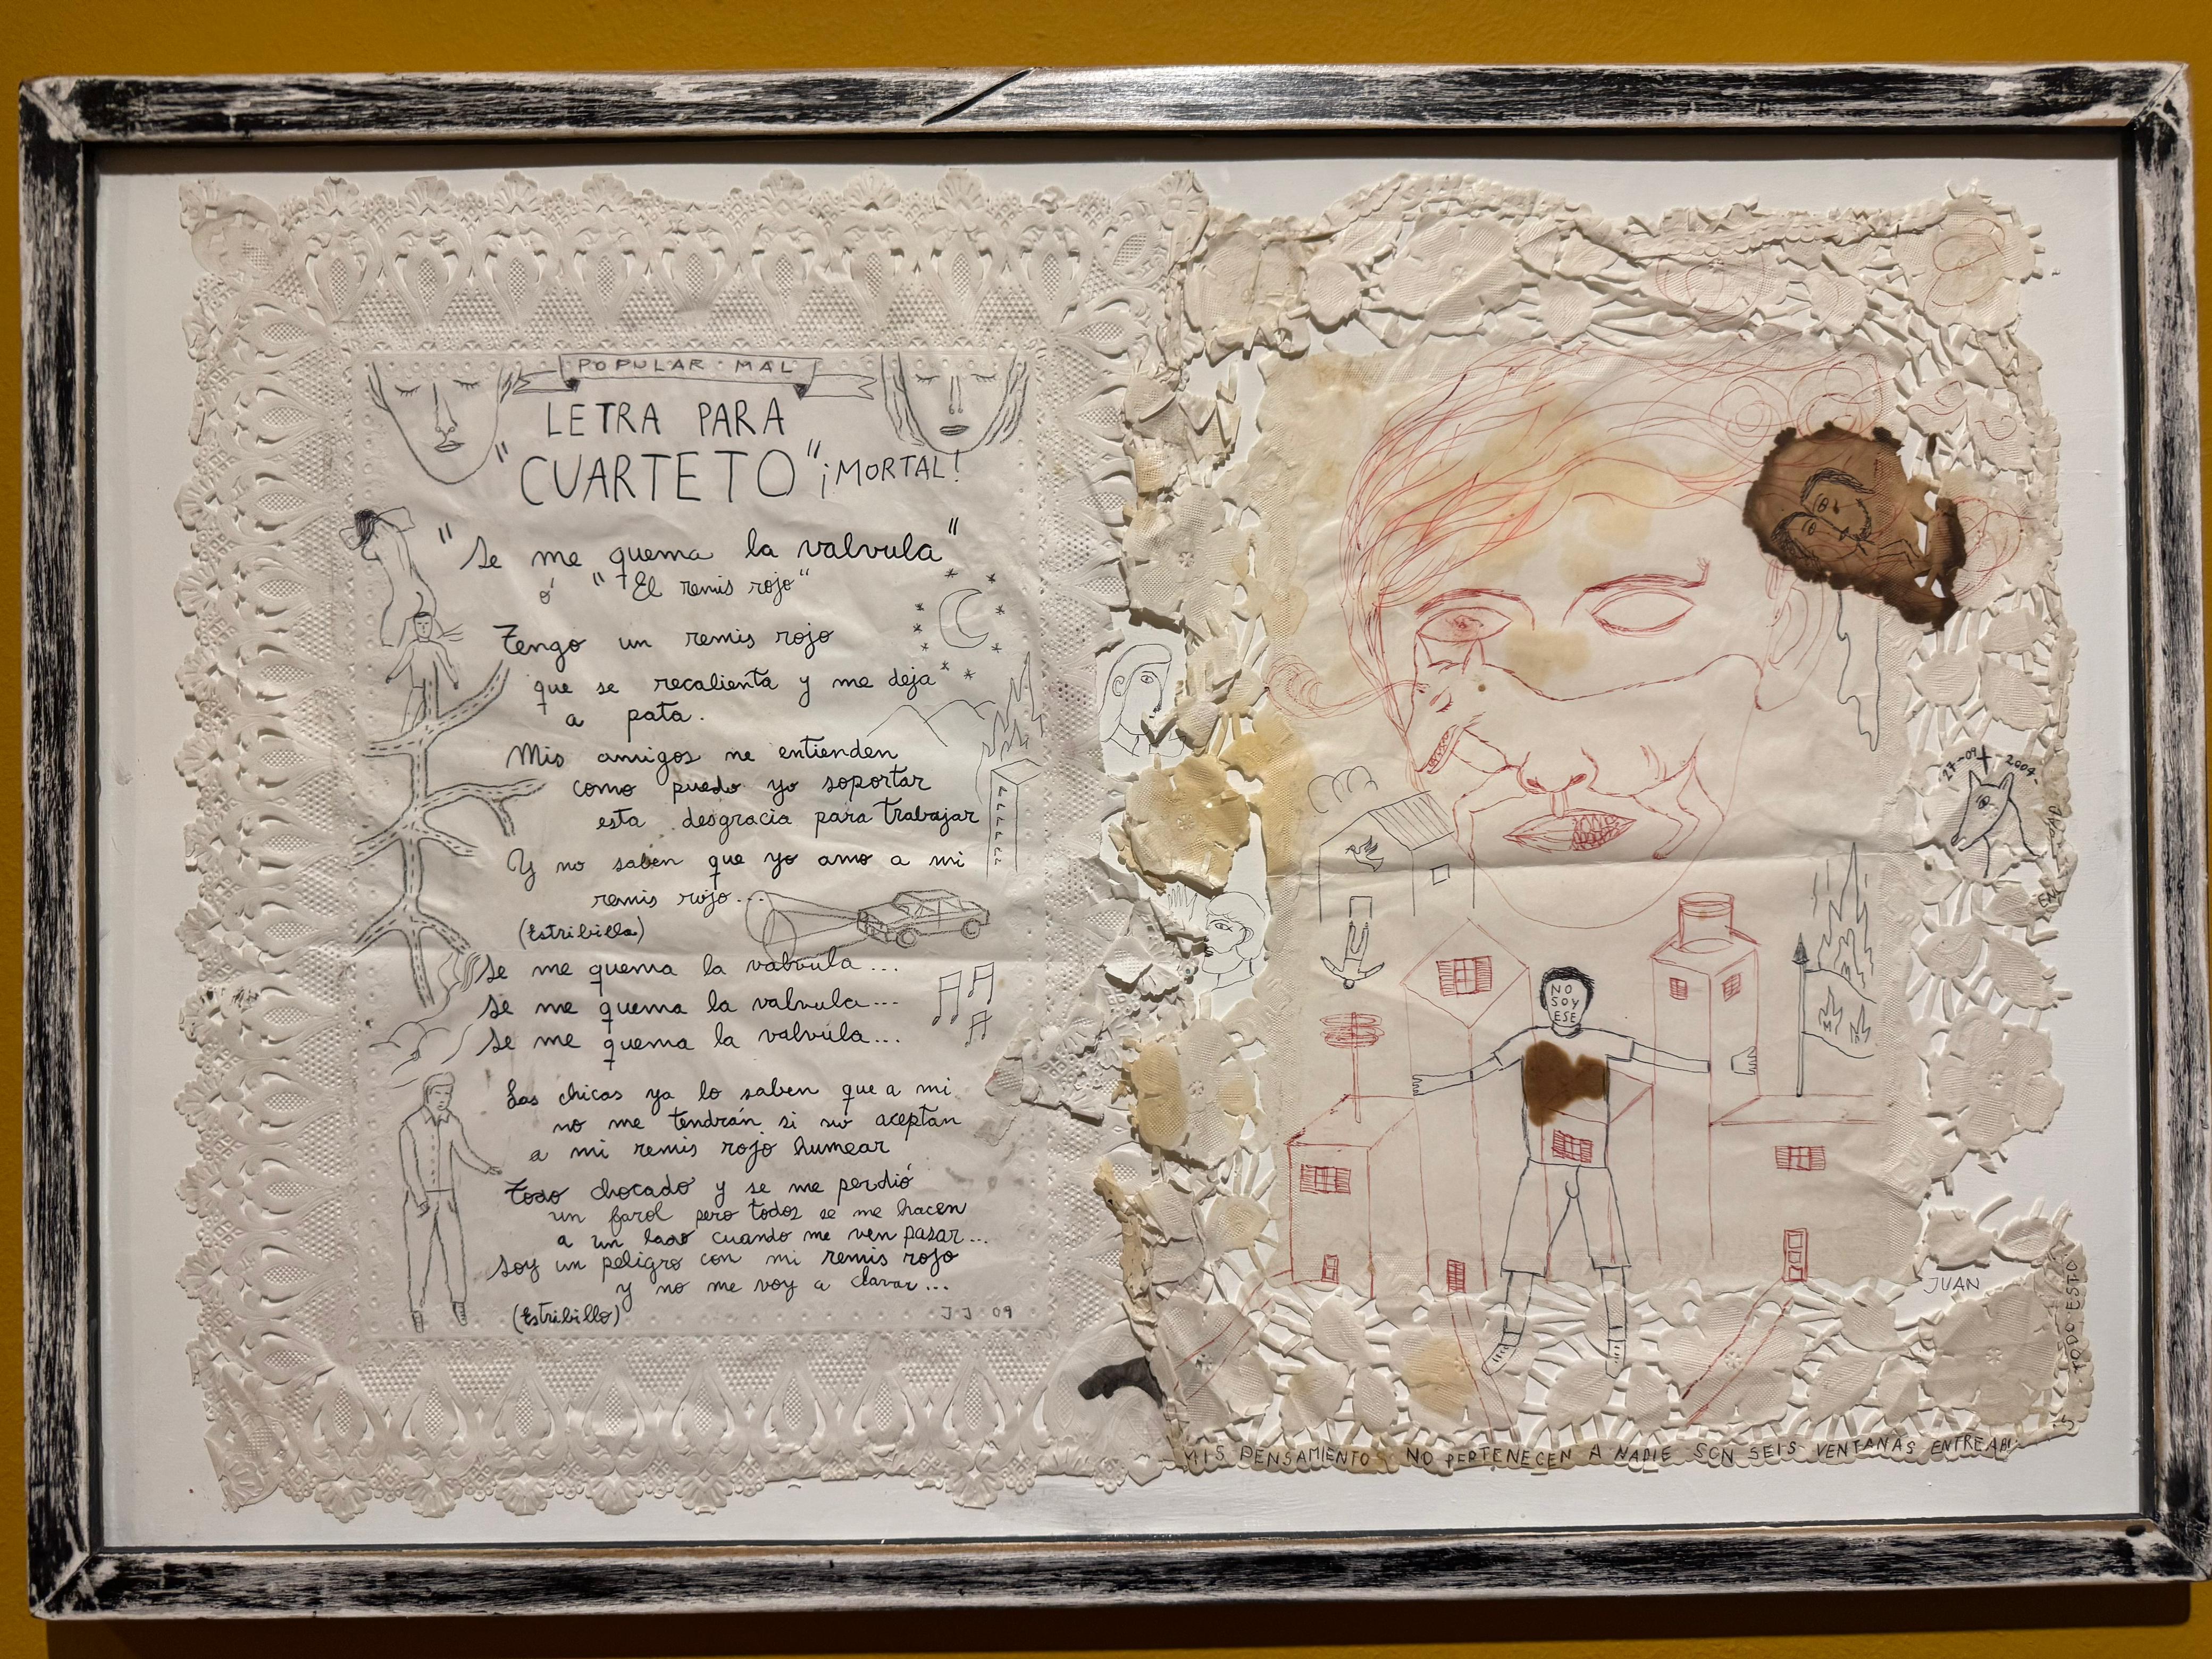 POPULAR MAL
LETRA PARA
"CUARTETO" ¡MORTAL!
"Se me quema la valvula"
ó "El remis rojo"
Tengo un remis rojo
que se recalienta y me deja
a pata.
Mis amigos ne entienden
como puedo yo soportar
esta desgracia para trabajar
Y no saben que yo amo a mi
remis rojo...
(Estribillo)
Se me quema la valvula...
Se me quema la valvula...
Se me quema la valvula...
Las chicas ya lo saben que a mi
no me tendrán si no aceptan
a mi remis rojo humear
Todo chocado y se me perdió
un farol pero todos se me hacen
a un lado cuando me ven pasar...
Soy un peligro con mi remis rojo
y no me voy a clavar...
(Estribillo)
J J 09
27-09-2007-
NO
SOY
ESE
JUAN
MIS PENSAMIENTOS NO PERTENECEN A NADIE SON SEIS VENTANAS ENTREABI
TODO ESTO